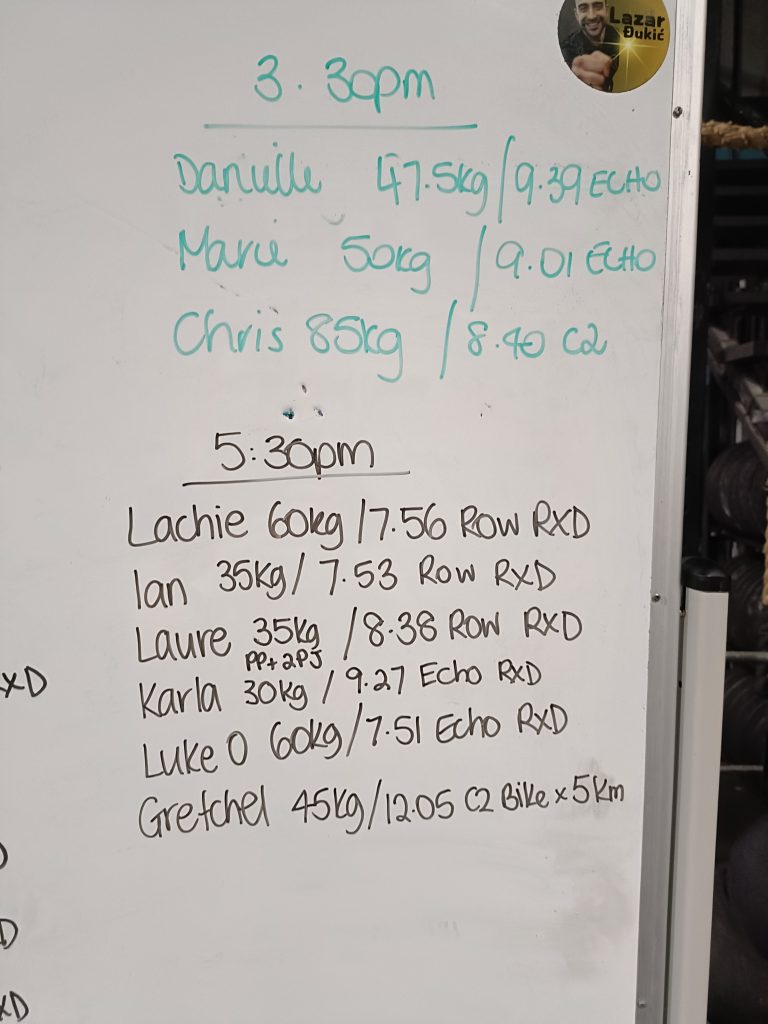 Lazar
Đukić
3.30pm
Danielle 47.5kg/9.39 ECHO
Marie 50kg /9.01 ECHO
Chris 85kg /8.40 C2
5:30pm
Lachie 60kg/7.56 Row RXD
Ian 35kg/7.53 Row RXD
Laure 35kg /8.38 Row RXD
PP+2PJ
Karla 30kg /9.27 Echo RXD
Luke O 60kg/7.51 Echo RXD
Gretchel 45kg/12.05 C2 Bike x 5km
XD
D
D
XD